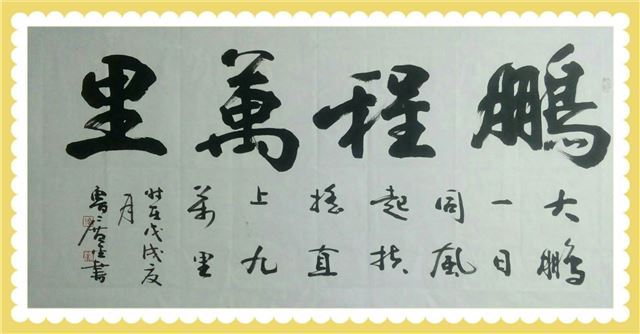 鵬程萬里
大鵬
一日
同風
起扶
搖直
上九
萬里
时在戊戌夏
月